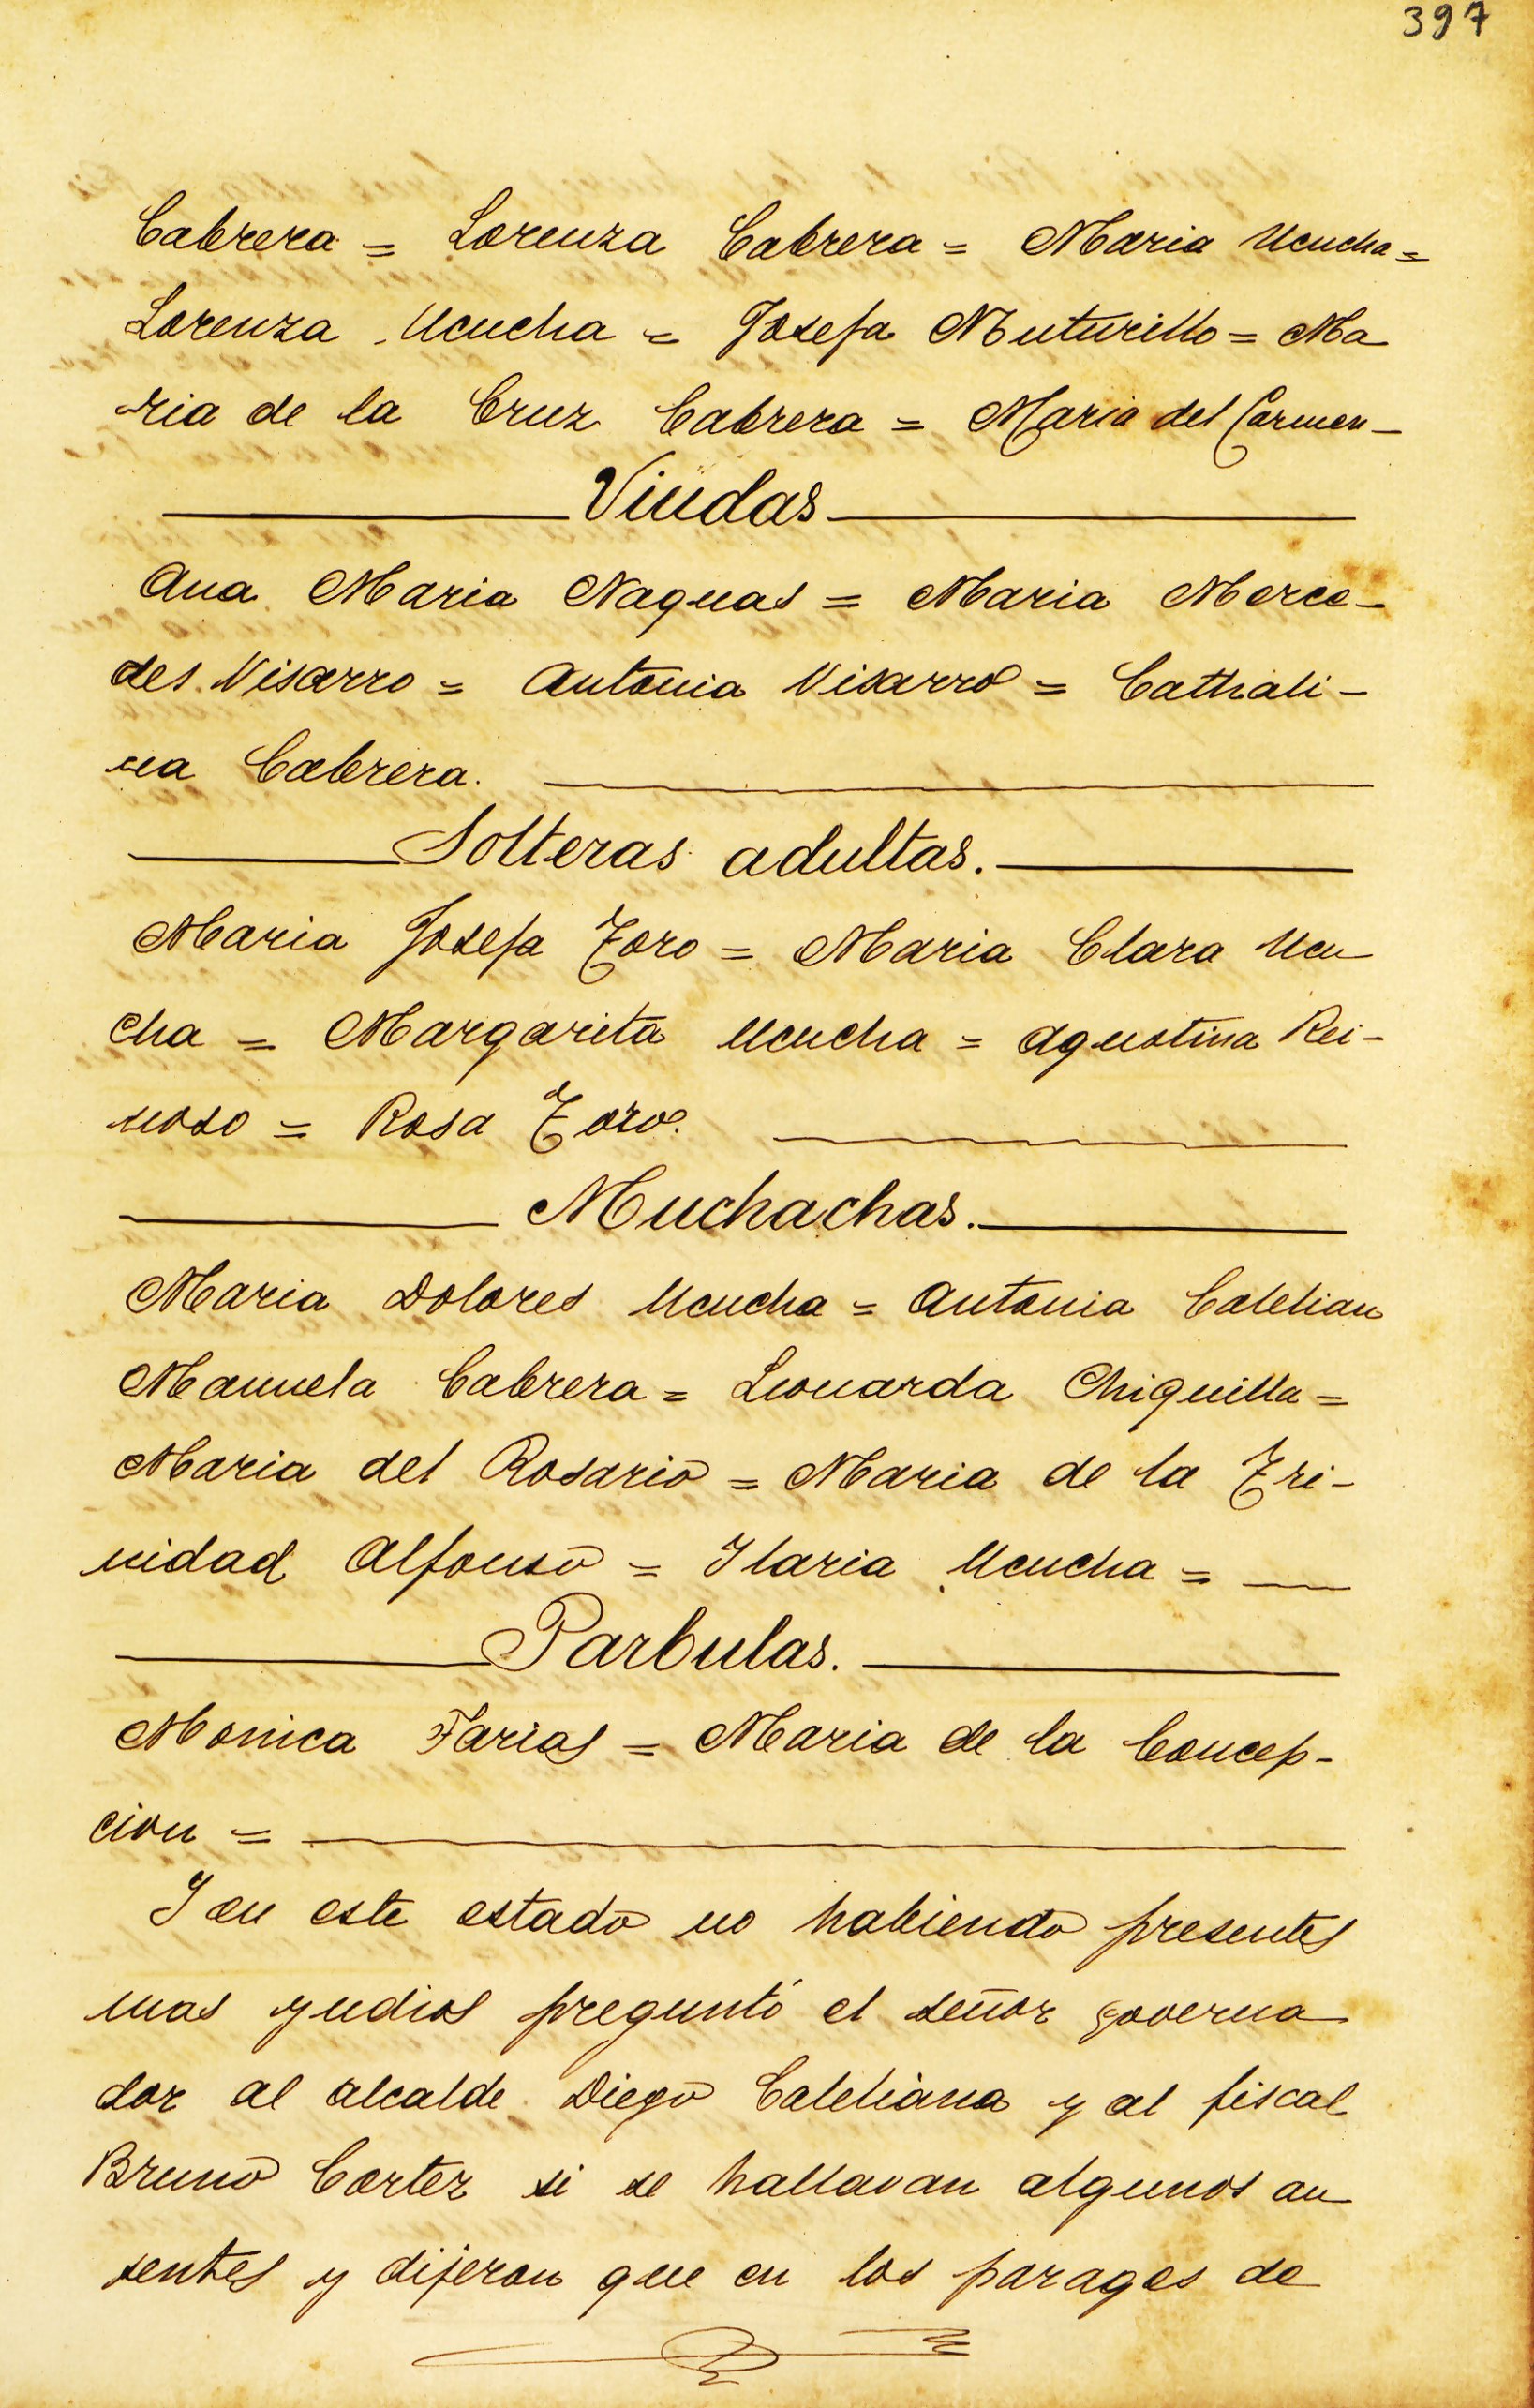 397
Cabrera = Lorenza Cabrera = Maria Ucucha =
Lorenza Ucucha = Josefa Muturillo = Ma
ria de la Cruz Cabrera = Maria del Carmen -
Viudas
Ana Maria Naquas = Maria Merce-
des Visarro = Antonia Visarro = Cathali-
na Cabrera.
Solteras adultas.
Maria Josefa Toro = Maria Clara Ucu
cha = Margarita Ucucha = Agustina Rei-
noso = Rosa Toro.
Muchachas.
Maria Dolores Ucucha = Antonia Calelian
Manuela Cabrera = Leonarda Chiquilla =
Maria del Rosario = Maria de la Tri-
nidad Alfonso = Ilaria Ucucha =
Parbulas.
Monica Farias = Maria de la Concep-
cion =
I en este estado no habiendo presentes
mas yndios preguntó el señor governa
dor al alcalde Diego Caleliana y al fiscal
Bruno Cortez si se hallavan algunos au
sentes y dijeron que en los parages de